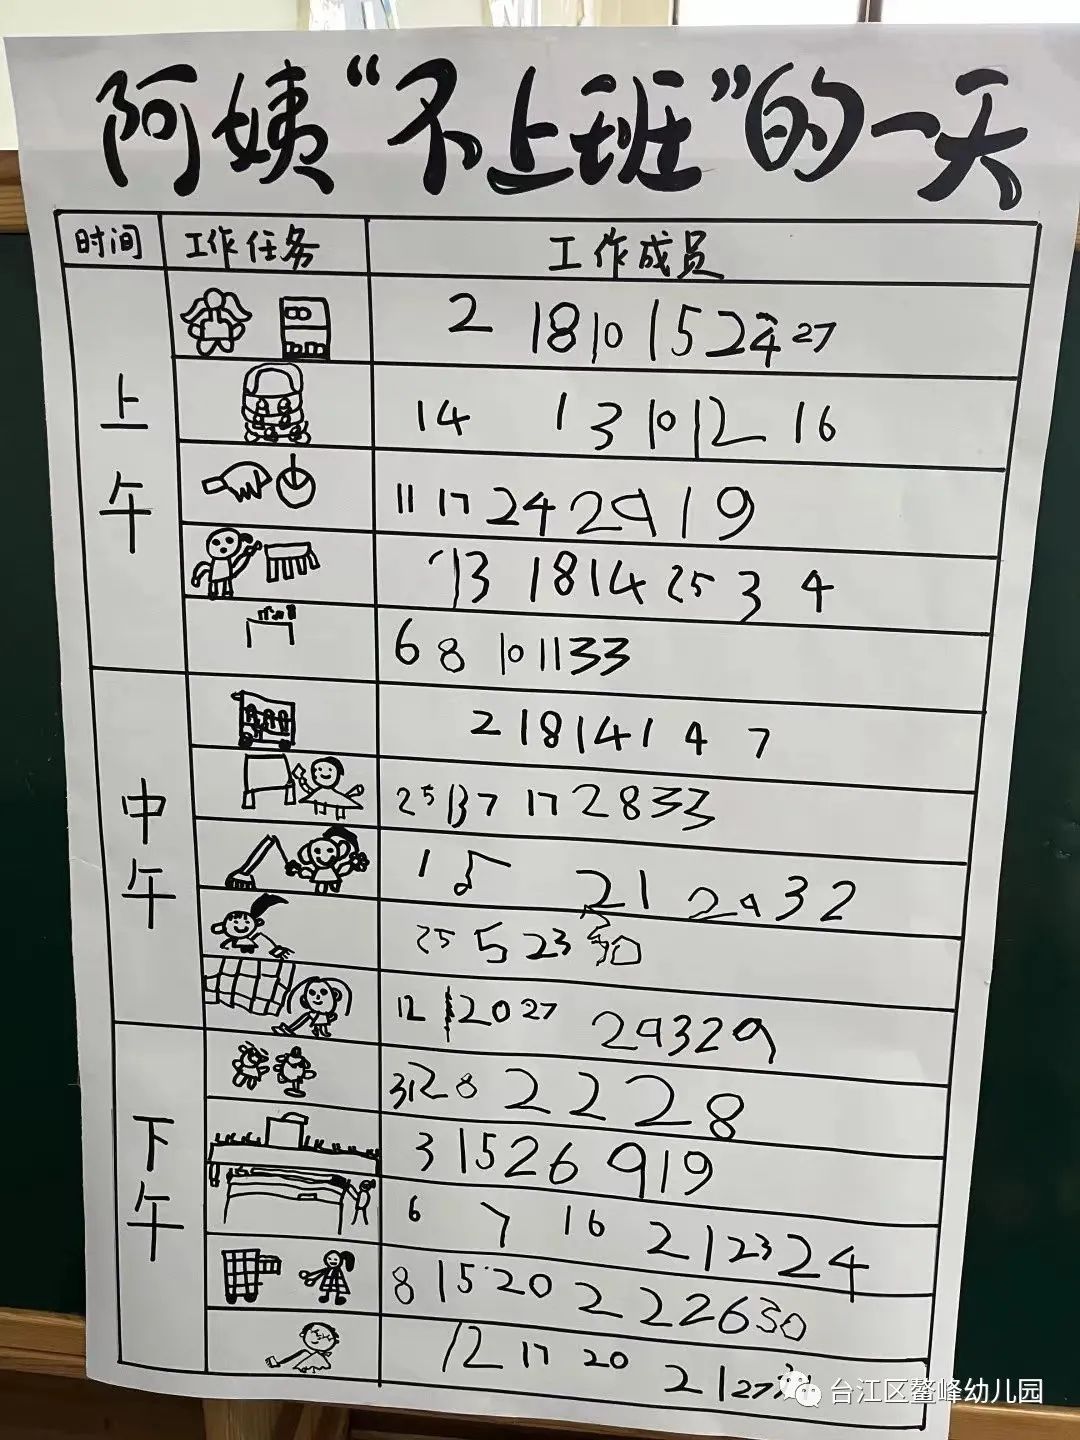 阿姨“不上班”的一天
时间 工作任务 工作成员
上午
2 18 10 15 24 27
14 1 3 10 12 16
11 17 24 29 19
13 18 14 25 3 4
6 8 10 11 33
中午
2 18 14 1 4 7
25 13 7 17 28 33
1 21 29 32
25 5 23 30
12 20 27 29 32 9
下午
31 28 2 2 28
3 15 26 9 19
6 7 16 21 23 24
8 15 20 2 22 26 30
12 17 20 21 27
台江区鳌峰幼儿园